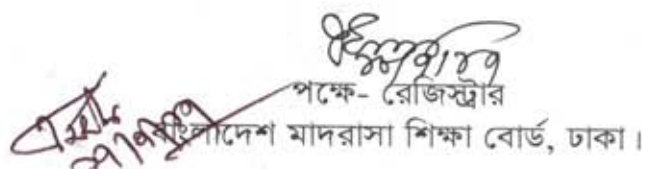 পক্ষে- রেজিস্ট্রার
বাংলাদেশ মাদরাসা শিক্ষা বোর্ড, ঢাকা।